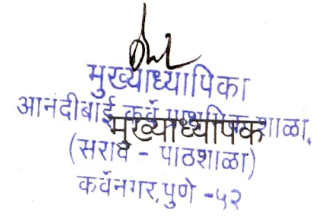 मुख्याध्यापिका
आनंदीबाई कर्वे प्राथमिक शाळा,
मुख्याध्यापक
(सराव - पाठशाळा)
कर्वेनगर, पुणे -५२